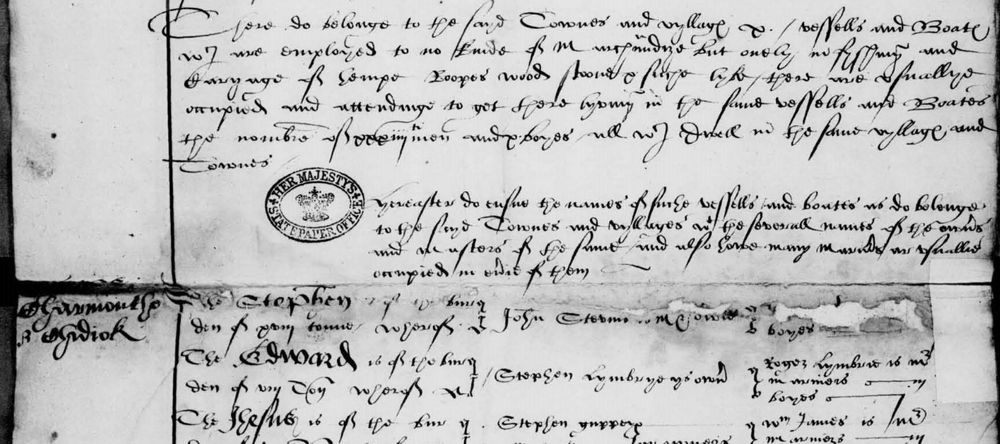 There do belonge to the sayd Townes and vyllag x. / vessells and Boat
wch are employed to no kinde of Marchandize but onely in fysshing and
Caryage of hempe Roopes wood stones & suche lyke, there are vsuallye
occupied and attendinge to get there lyving in the same vessells and Boates
the nombre of xxxiiij men and x boyes all wch dwell in the same vyllag and
Townes
HER MAJESTY'S
STATE PAPER OFFICE
Hereafter do ensue the names of suche vessells and boates as do belonge
to the sayd Townes and vyllages wt the severall names of the owners
and Masters of the same, and also howe many Mariners ar vsuallie
occupied in of them
Charmouthe
& Chidiok
The Stephen of the bur
den of xviij tonne, wherof John
boyes
The Edward is of the bur
den of viij Ton wherof Stephen Lymbrye ys owner
Roger Lymbrie is mr
mariners iij
boyes
The Jhesus is of the bur Stephen gupper
Wm James is mr
mariners